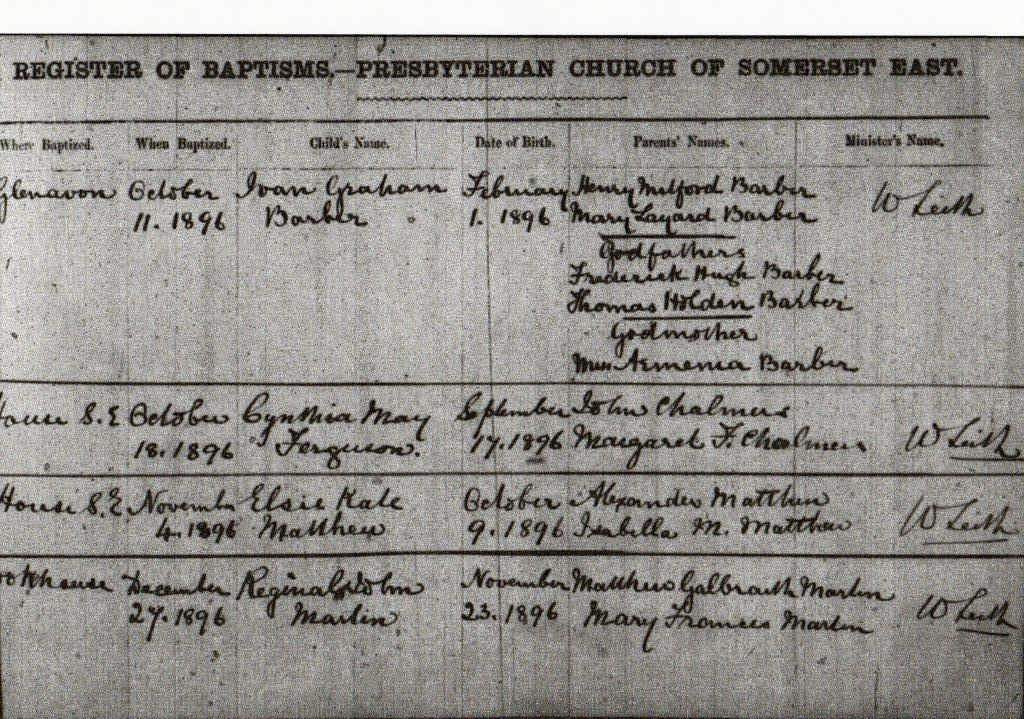 REGISTER OF BAPTISMS,—PRESBYTERIAN CHURCH OF SOMERSET EAST.
Where Baptized. When Baptized. Child's Name. Date of Birth. Parents' Names. Minister's Name.
Glenavon October Ivan Graham February Henry Milford Barber W Leith
11. 1896 Barber 1. 1896 Mary Layard Barber
Godfathers
Frederick Hugh Barber
Thomas Holden Barber
Godmother
Miss Armenia Barber
House S.E October Cynthia May September John Chalmers W Leith
18. 1896 Ferguson. 17. 1896 Margaret F. Chalmers
House S.E. November Elsie Kate October Alexander Matthew W Leith
4. 1896 Matthew 9. 1896 Isabella M. Matthew
December Reginald John November Matthew Galbraith Martin W Leith
27. 1896 Martin 23. 1896 Mary Frances Martin